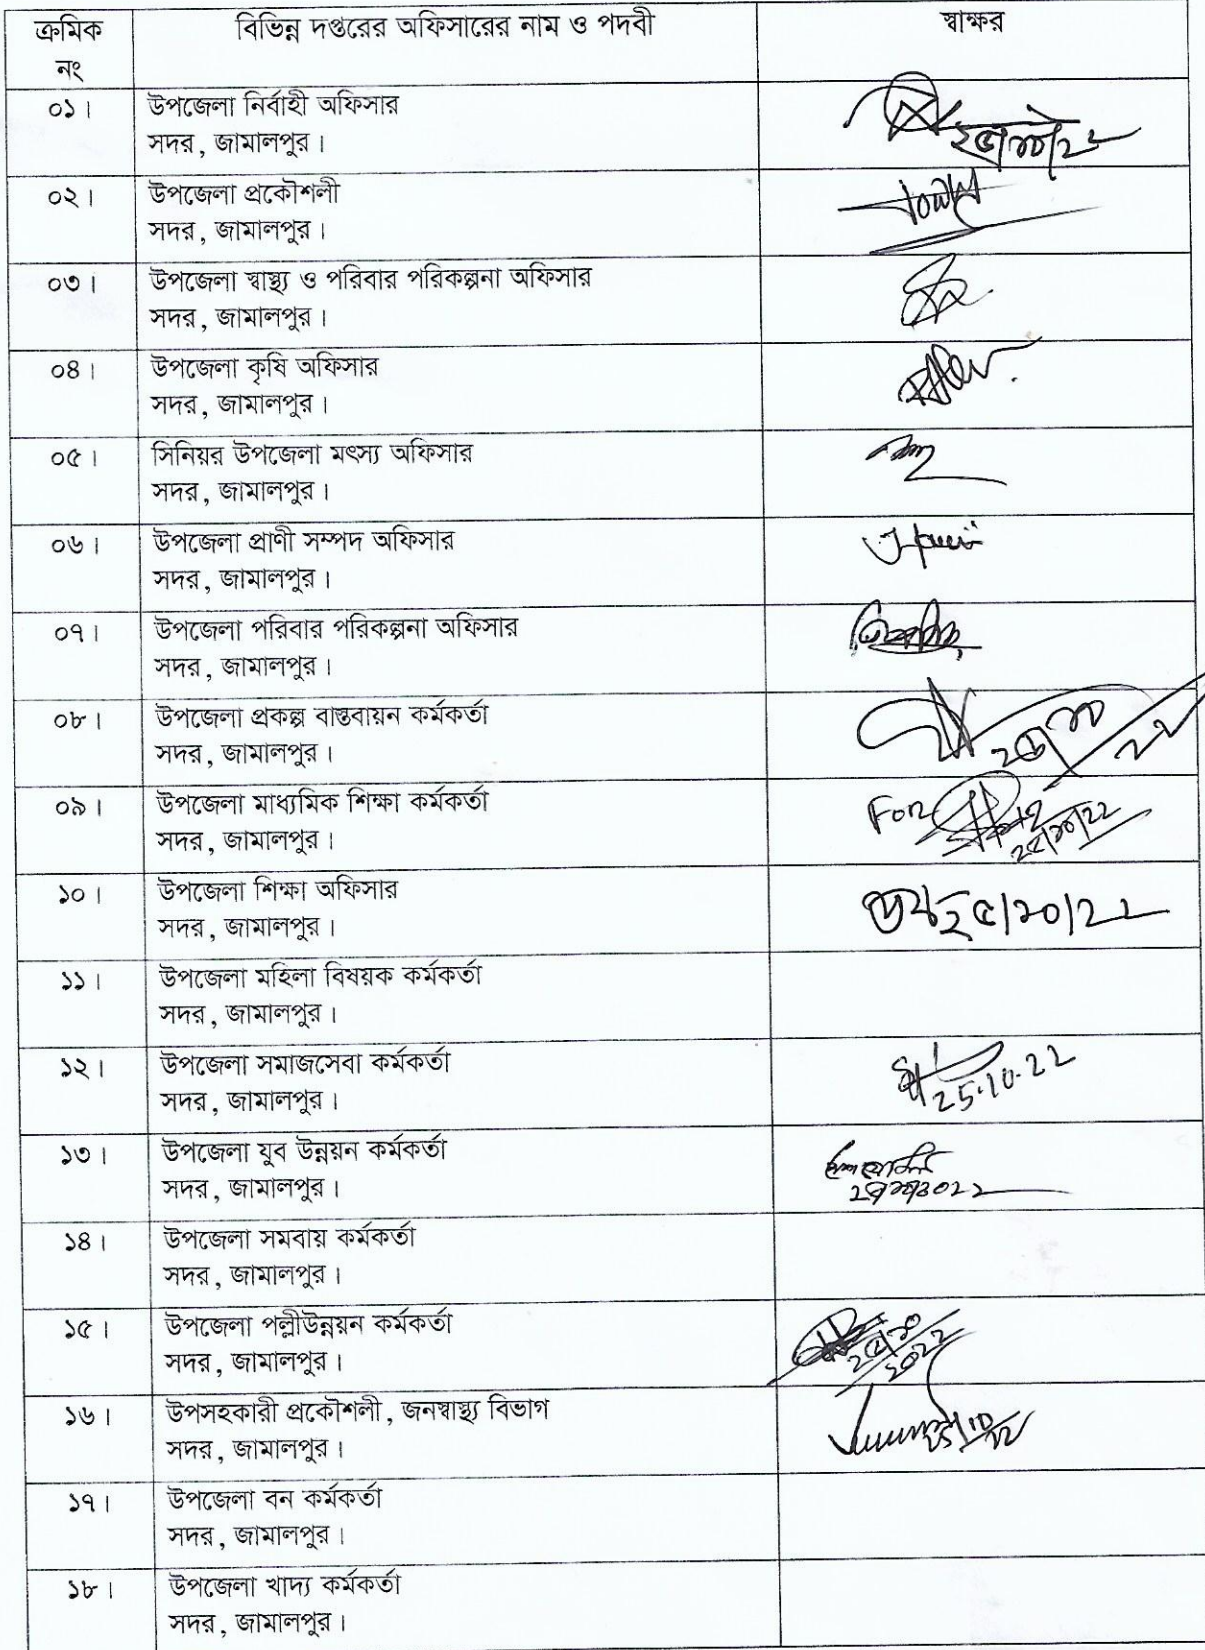 ক্রমিক নং বিভিন্ন দপ্তরের অফিসারের নাম ও পদবী স্বাক্ষর
০১। উপজেলা নির্বাহী অফিসার
সদর, জামালপুর।
২৫/১০/২২
০২। উপজেলা প্রকৌশলী
সদর, জামালপুর।
০৩। উপজেলা স্বাস্থ্য ও পরিবার পরিকল্পনা অফিসার
সদর, জামালপুর।
০৪। উপজেলা কৃষি অফিসার
সদর, জামালপুর।
০৫। সিনিয়র উপজেলা মৎস্য অফিসার
সদর, জামালপুর।
০৬। উপজেলা প্রাণী সম্পদ অফিসার
সদর, জামালপুর।
০৭। উপজেলা পরিবার পরিকল্পনা অফিসার
সদর, জামালপুর।
০৮। উপজেলা প্রকল্প বাস্তবায়ন কর্মকর্তা
সদর, জামালপুর।
২৫/১০/২২
০৯। উপজেলা মাধ্যমিক শিক্ষা কর্মকর্তা
সদর, জামালপুর।
For
২৫/১০/২২
১০। উপজেলা শিক্ষা অফিসার
সদর, জামালপুর।
২৫/১০/২২
১১। উপজেলা মহিলা বিষয়ক কর্মকর্তা
সদর, জামালপুর।
১২। উপজেলা সমাজসেবা কর্মকর্তা
সদর, জামালপুর।
25.10.22
১৩। উপজেলা যুব উন্নয়ন কর্মকর্তা
সদর, জামালপুর।
১৪। উপজেলা সমবায় কর্মকর্তা
সদর, জামালপুর।
১৫। উপজেলা পল্লীউন্নয়ন কর্মকর্তা
সদর, জামালপুর।
২৫/১০/২০২২
১৬। উপসহকারী প্রকৌশলী, জনস্বাস্থ্য বিভাগ
সদর, জামালপুর।
১৭। উপজেলা বন কর্মকর্তা
সদর, জামালপুর।
১৮। উপজেলা খাদ্য কর্মকর্তা
সদর, জামালপুর।